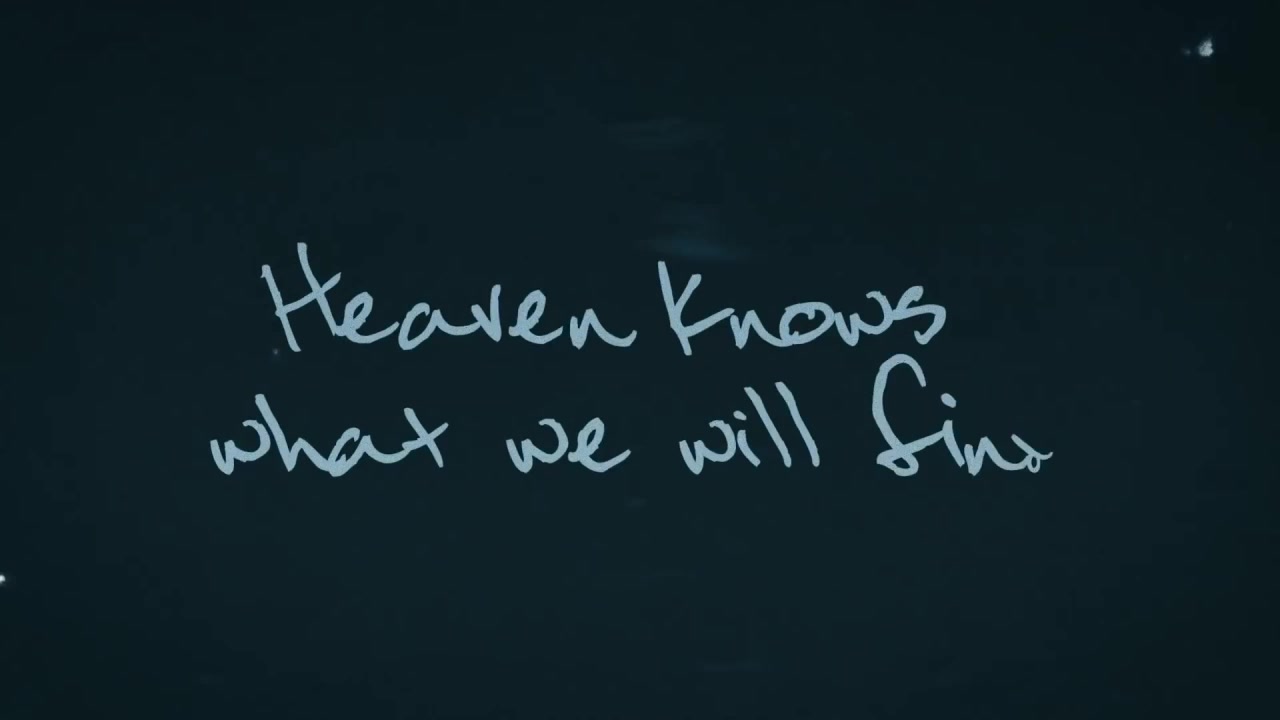 Heaven knows
what we will fin